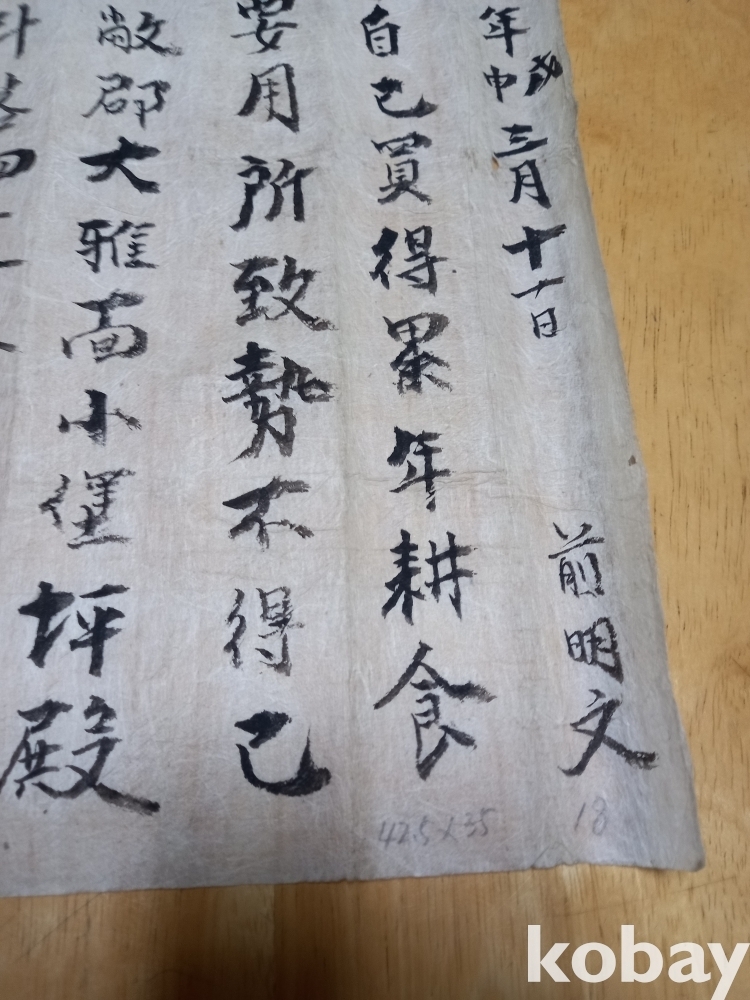 年戊申三月十一日 前明文
自己買得累年耕食
要用所致勢不得已
敝郡大雅面小堡坪殿
42.5×35
18
kobay